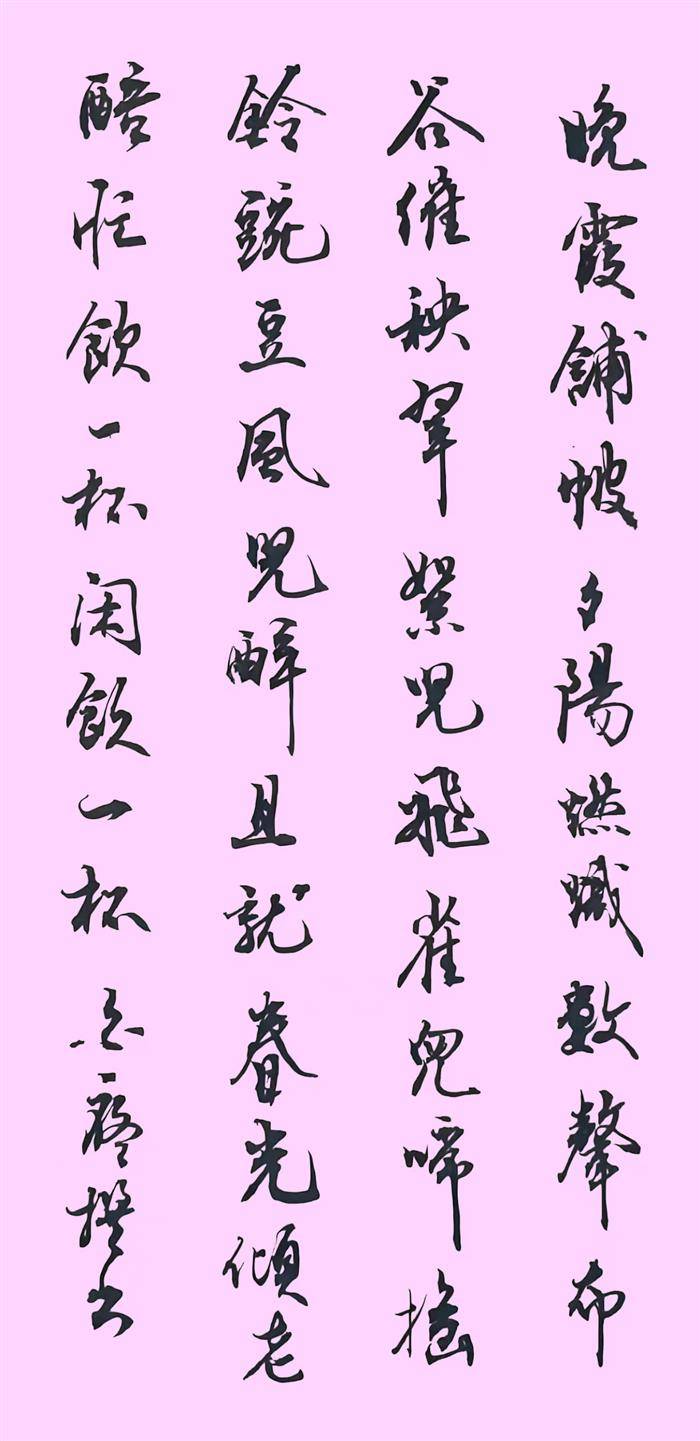 晚霞鋪帔夕陽燃熾數聲布
谷催秧翠絮兒飛雀兒啼搖
鈴豌豆風兒醉且就春光傾老
醅忙飲一杯闲飲一杯 撰书